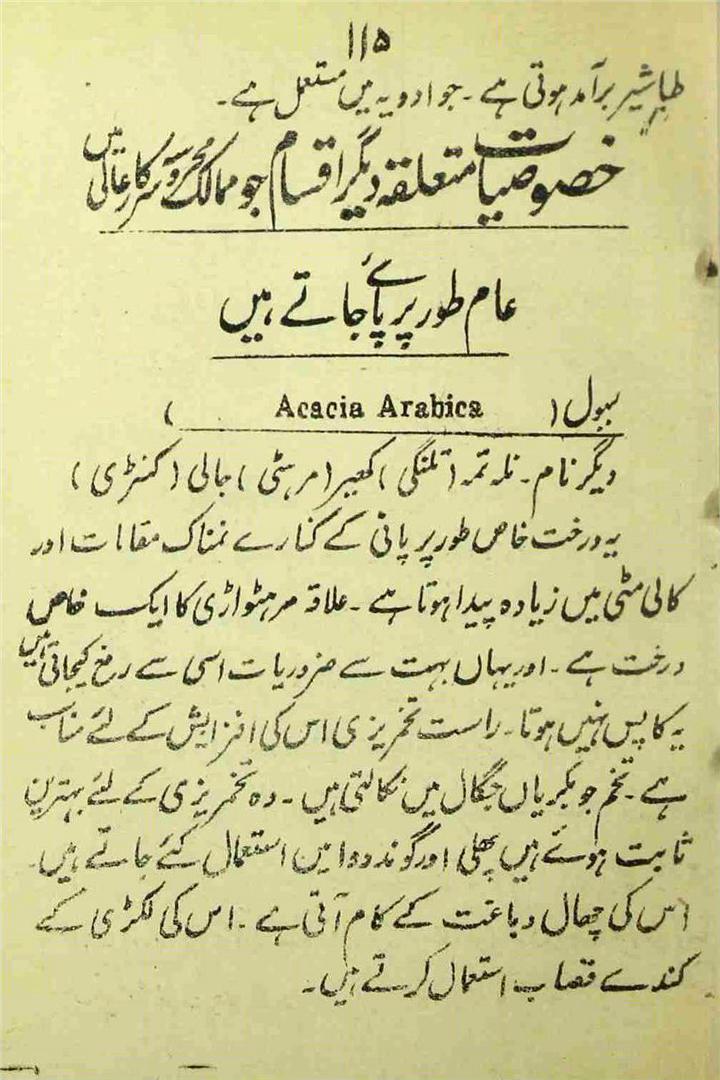 ۱۱۵
طباشیر برآمد ہوتی ہے۔ جو ادویہ میں مستعمل ہے۔
خصوصیات متعلقہ دیگر اقسام جو ممالک محروسہ سرکار عالی میں
عام طور پر پائے جاتے ہیں
ببول (Acacia Arabica)
دیگر نام۔ نلہ تمہ (تلنگی) کھیر (مرہٹی) جالی (کنڑی)
یہ درخت خاص طور پر پانی کے کنارے نمناک مقامات اور
کالی مٹی میں زیادہ پیدا ہوتا ہے۔ علاقہ مرہٹواڑی کا ایک خاص
درخت ہے۔ اور یہاں بہت سے ضروریات اسی سے رفع کیجاتی ہیں
یہ کاپس نہیں ہوتا۔ راست تخمریزی اس کی افزایش کے لئے مناسب
ہے۔ تخم جو بکریاں جگال میں نکالتی ہیں۔ وہ تخمریزی کے لئے بہترین
ثابت ہوئے ہیں پھلی اور گوند دوا میں استعمال کئے جاتے ہیں۔
اس کی چھال دباغت کے کام آتی ہے۔ اس کی لکڑی کے
کندے قصاب استعمال کرتے ہیں۔